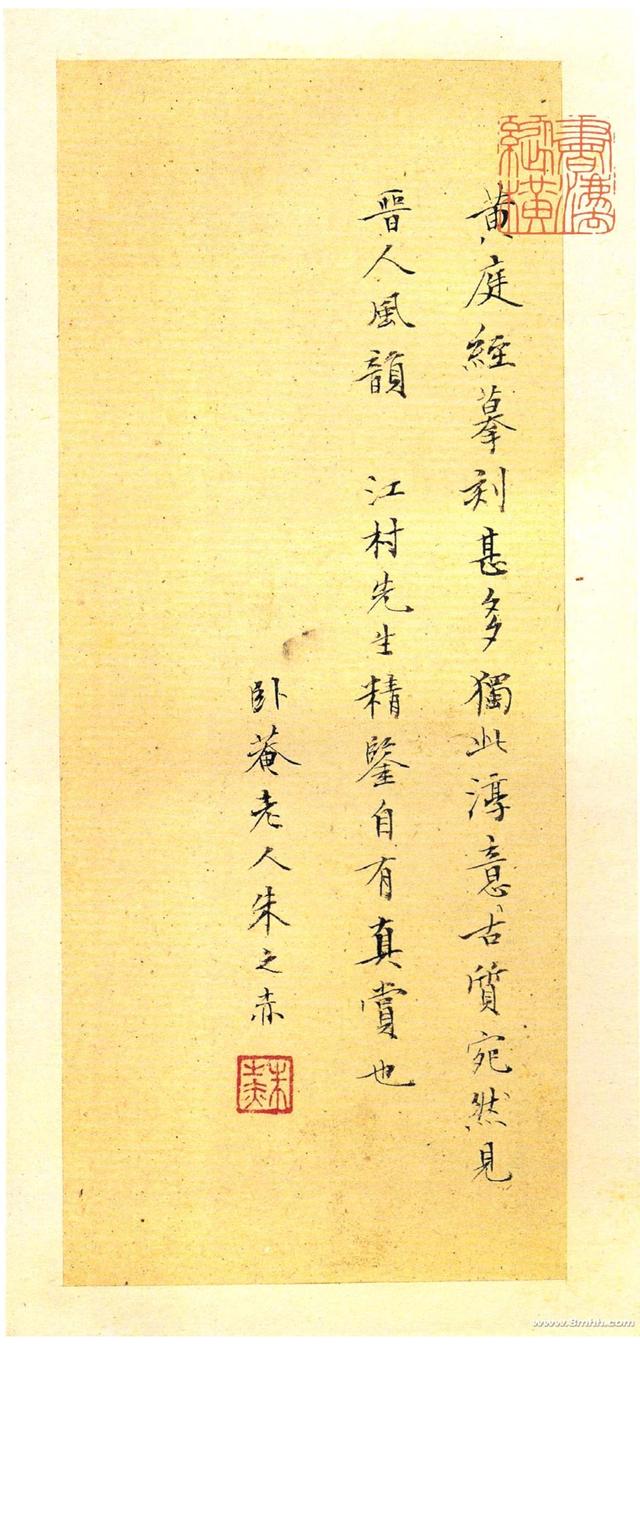 黃庭經摹刻甚多獨此淳意古質宛然見
晉人風韻　江村先生精鑒自有真賞也
臥菴老人朱之赤
www.8mhh.com